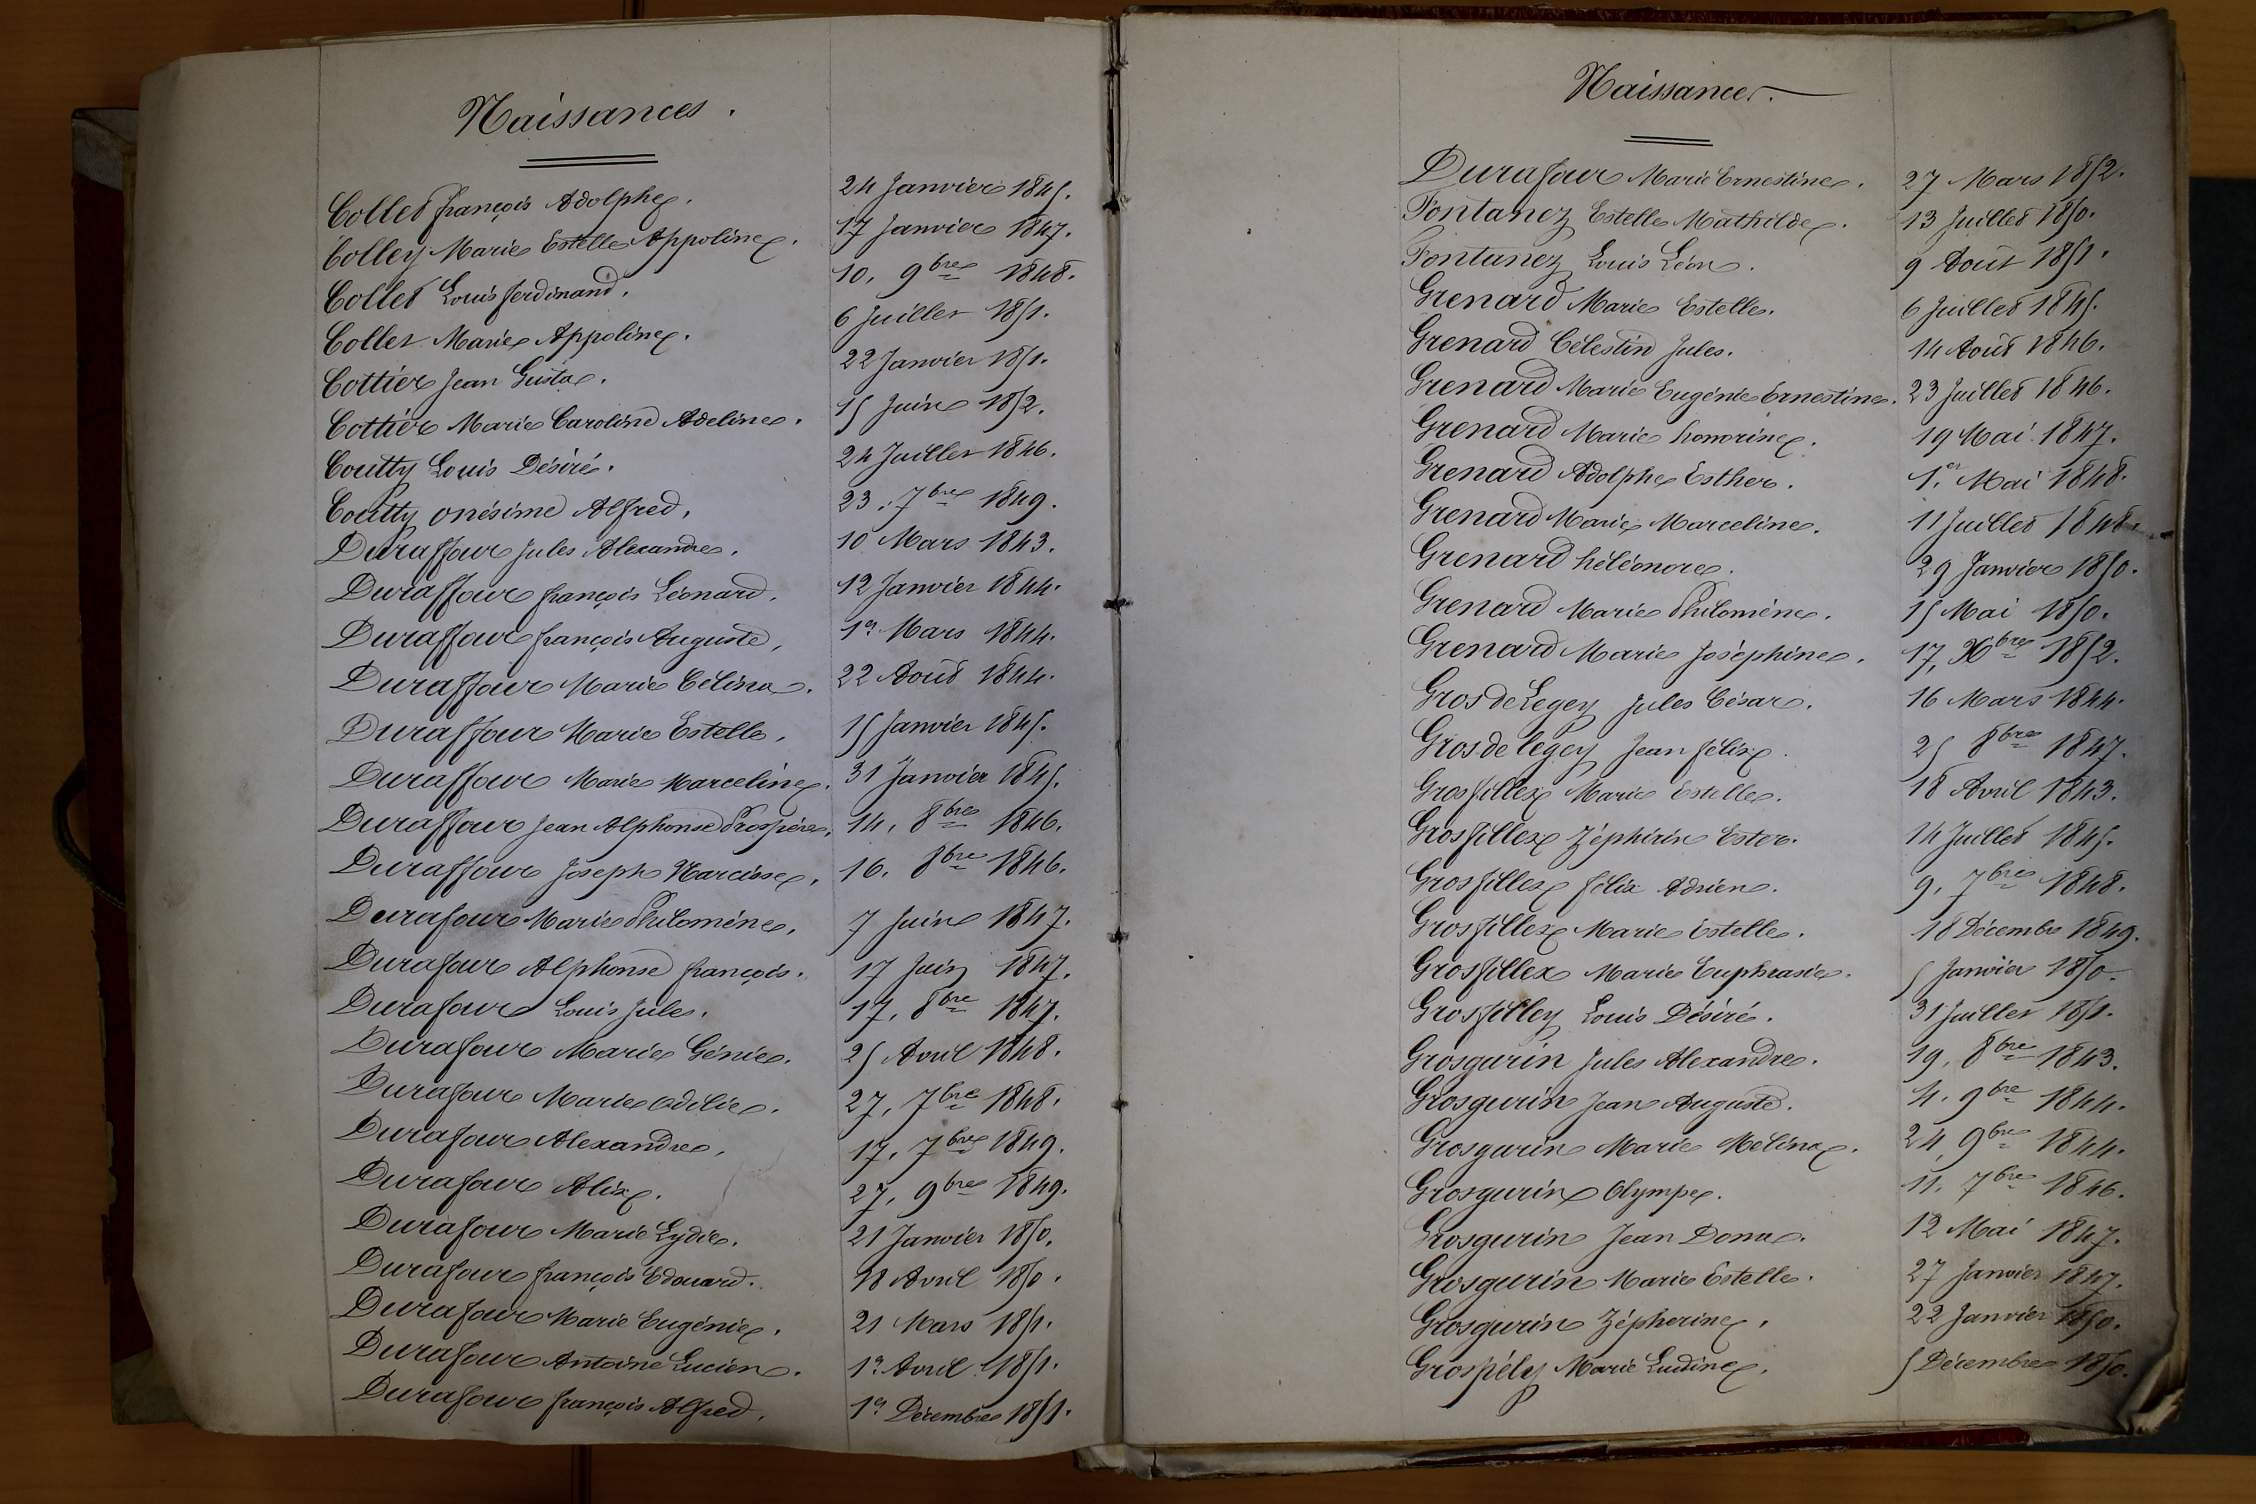 Naissances.
Collet françois Adolphe. 24 Janvier 1845.
Colley Marie Estelle Appoline. 17 Janvier 1847.
Collet Louis ferdinand. 10, 9bre 1848.
Collet Marie Appoline. 6 Juillet 1851.
Cottier Jean Gusta. 22 Janvier 1851.
Cottier Marie Caroline Adeline. 15 Juin 1852.
Coutty Louis Désiré. 24 Juillet 1846.
Coutty onésime Alfred. 23, 7bre 1849.
Duraffour Jules Alexandre. 10 Mars 1843.
Duraffour françois Léonard. 12 Janvier 1844.
Duraffour françois Auguste, 1er Mars 1844.
Duraffour Marie Célina. 22 Août 1844.
Duraffour Marie Estelle, 15 Janvier 1845.
Duraffour Marie Marceline. 31 Janvier 1845.
Duraffour Jean Alphonse Prospère. 14, 8bre 1846.
Duraffour Joseph Narcisse, 16, 8bre 1846.
Durafour Marie Philomène, 7 Juin 1847.
Durafour Alphonse françois. 17 Juin 1847.
Durafour Louis Jules. 17, 8bre 1847.
Durafour Marie Génie. 25 Avril 1848.
Durafour Marie Odilie. 27, 7bre 1848.
Durafour Alexandre, 17, 7bre 1849.
Durafour Alix. 27, 9bre 1849.
Durafour Marie Lydie. 21 Janvier 1850.
Durafour françois Edouard. 28 Avril 1850.
Durafour Marie Eugénie. 21 Mars 1851.
Durafour Antoine Lucien. 1er Avril 1851.
Durafour françois Alfred, 1er Décembre 1851.
Naissances.
Durafour Marie Ernestine. 27 Mars 1852.
Fontanez Estelle Mathilde. 13 Juillet 1850.
Fontanez Louis Léon. 9 Août 1851.
Grenard Marie Estelle. 6 Juillet 1845.
Grenard Célestin Jules. 14 Août 1846.
Grenard Marie Eugénie Ernestine. 23 Juillet 1846.
Grenard Marie honorine. 19 Mai 1847.
Grenard Adolphe Esther. 1er Mai 1848.
Grenard Marie Marceline. 11 Juillet 1848.
Grenard héléonore. 29 Janvier 1850.
Grenard Marie Philomène. 15 Mai 1850.
Grenard Marie Joséphine. 17, Xbre 1852.
Gros de Legey Jules César. 16 Mars 1844.
Gros de legey Jean félix. 25 8bre 1847.
Grosfillex Marie Estelle. 18 Avril 1843.
Grosfillex Zéphirin Ester. 14 Juillet 1845.
Grosfillex félix Adrien. 9, 7bre 1848.
Grosfillex Marie Estelle. 18 Décembre 1849.
Grosfillex Marie Euphrasie. 5 Janvier 1850.
Grosfilley Louis Désiré. 31 Juillet 1851.
Grosgurin Jules Alexandre. 19, 8bre 1843.
Grosgurin Jean Auguste. 4, 9bre 1844.
Grosgurin Marie Mélina. 24, 9bre 1844.
Grosgurin Olympe. 11, 7bre 1846.
Grosgurin Jean Dona. 12 Mai 1847.
Grosgurin Marie Estelle. 27 Janvier 1847.
Grosgurin Zépherine, 22 Janvier 1850.
Grospély Marie Ludine. 5 Décembre 1850.